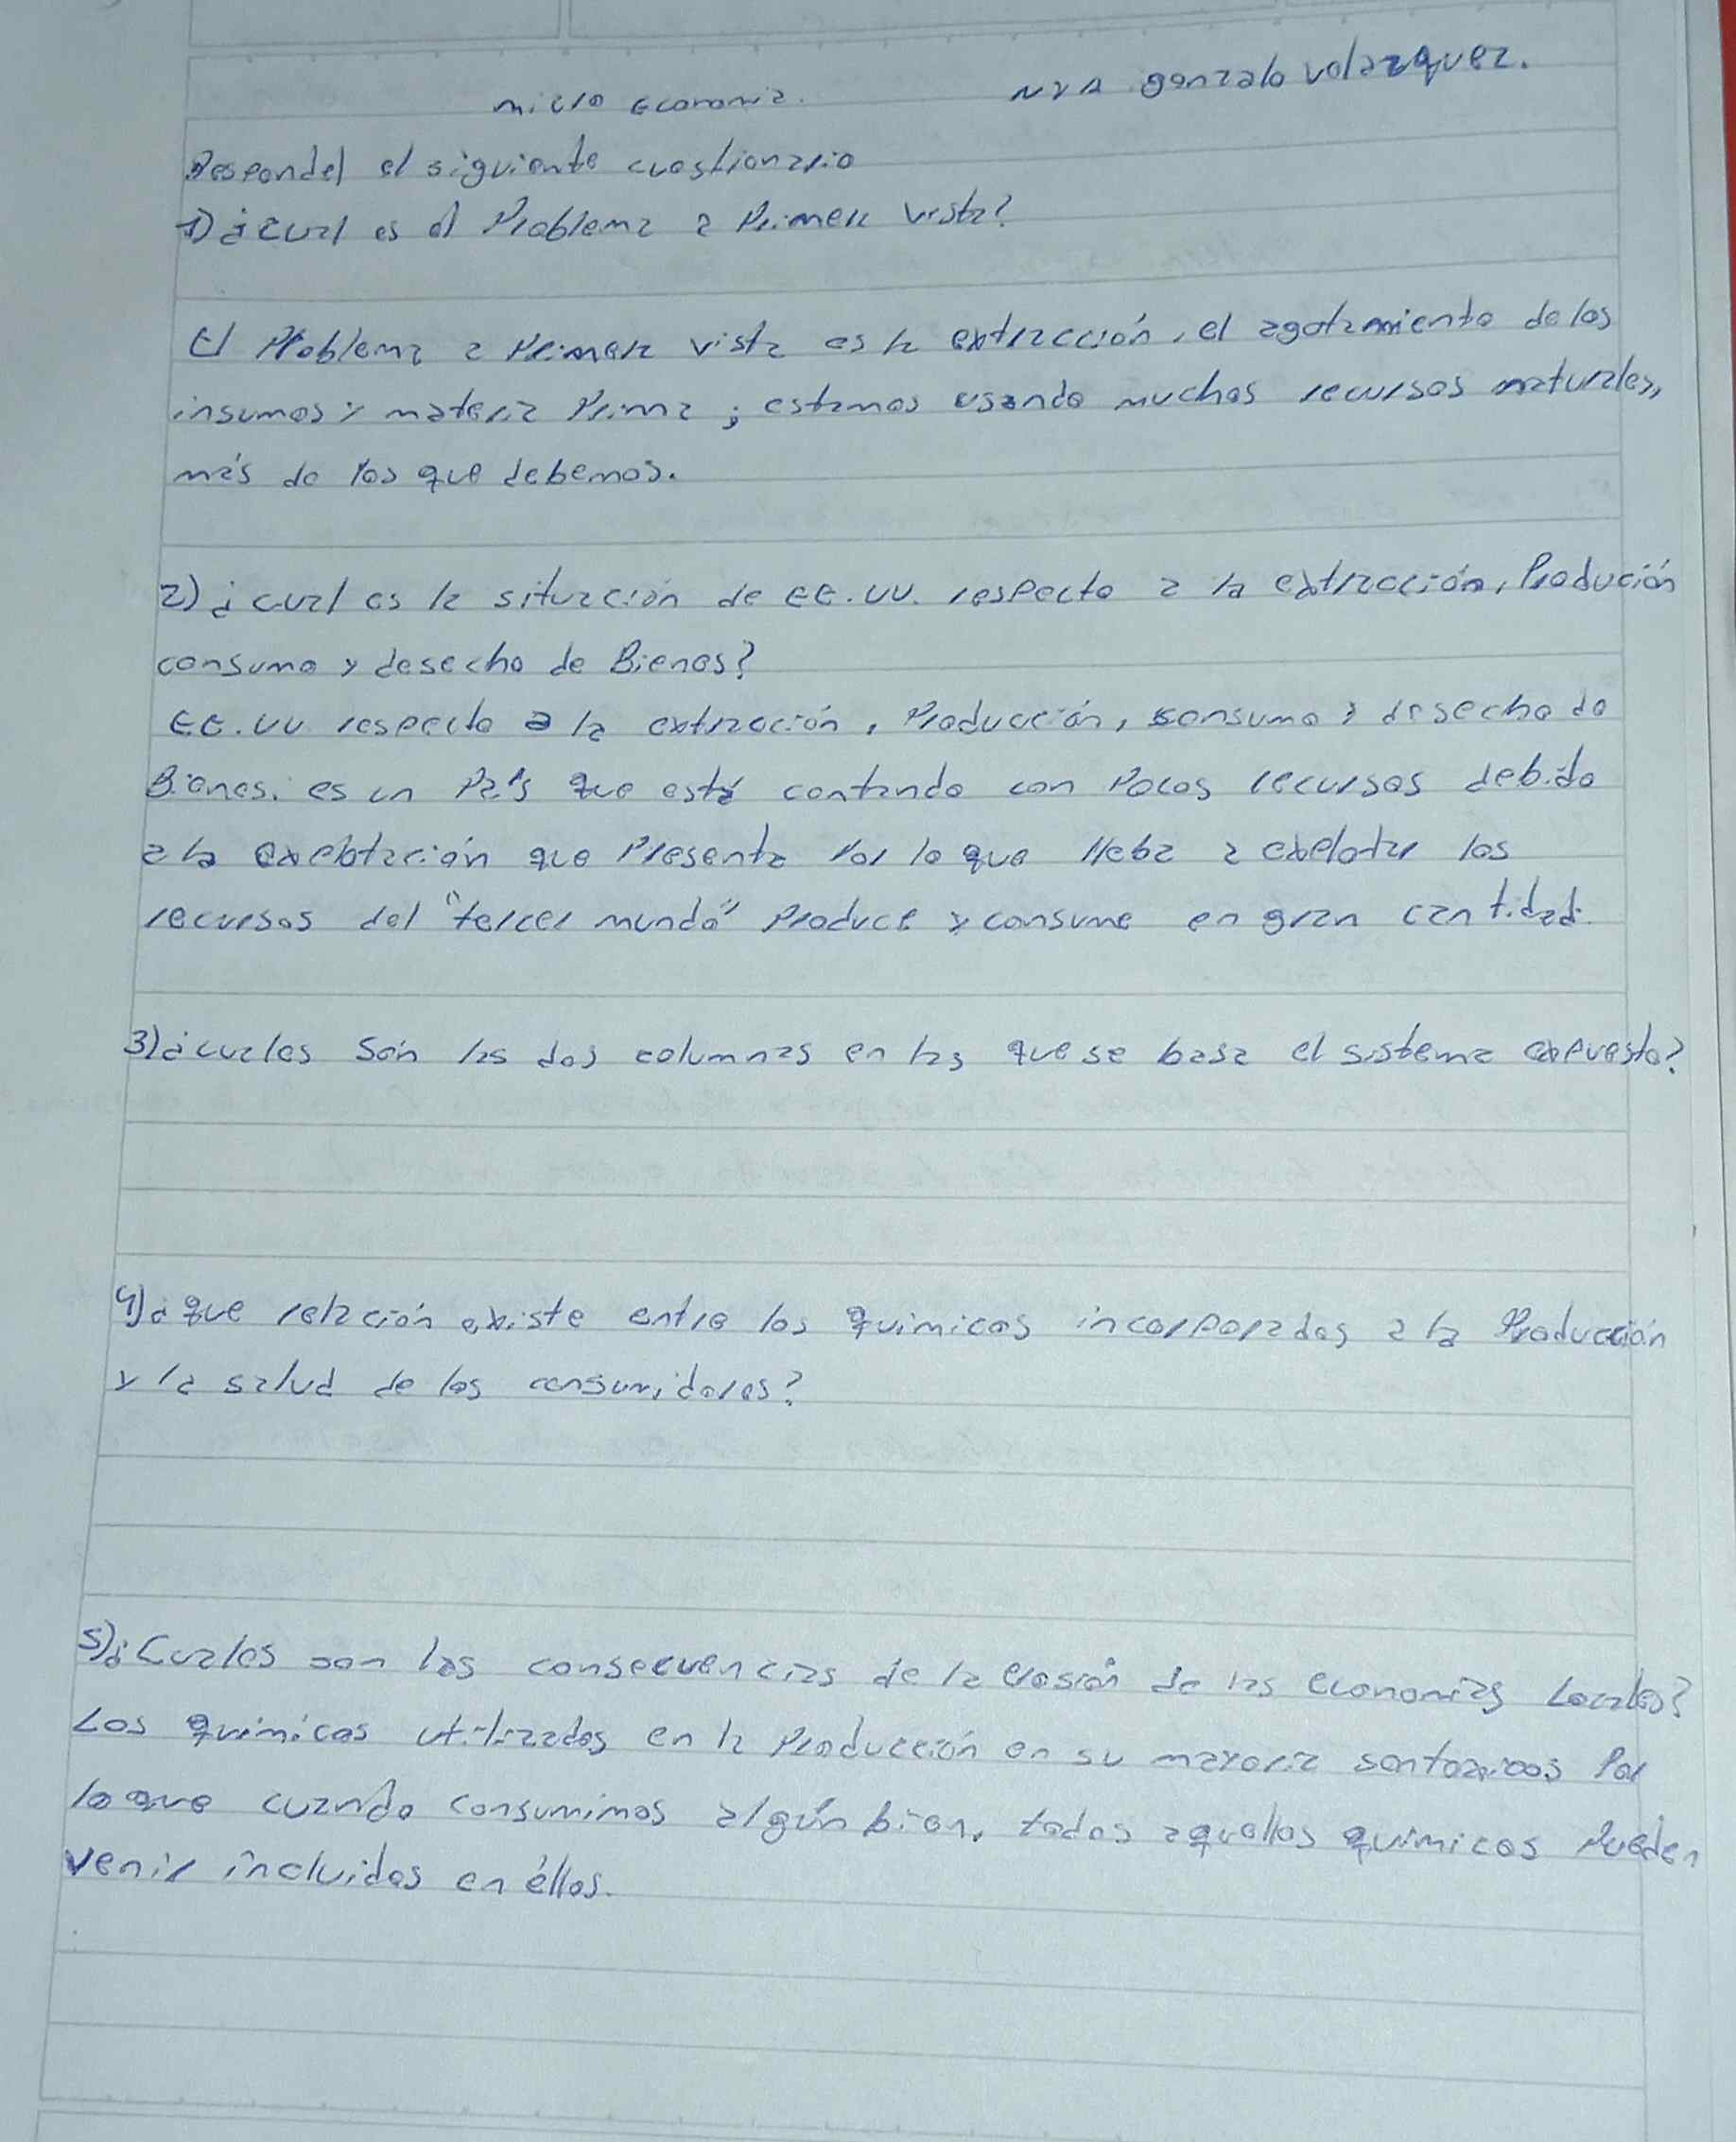 micro Economia.
NyA gonzalo volazquez.
Responder el siguiente cuestionario
1) ¿cual es el Problema a Primera vista?
El Problema a Primera vista es la extracción, el agotamiento de los
insumos y materia Prima; estamos usando muchos recursos naturales,
más de los que debemos.
2) ¿cual es la situación de EE.UU. respecto a la extracción, Produción
consumo y desecho de Bienes?
EE.UU. respecto a la extracción, Producción, consumo y desecho de
Bienes. es un País que está contando con Pocos recursos debido
a la expelotación que Presenta Por lo que lleba a expelotar los
recursos del "tercer mundo" Produce y consume en gran cantidad.
3) ¿cuales son las dos columnas en las que se basa el sistema expuesto?
4) ¿que relación existe entre los quimicos incorporados a la Producción
y la salud de los consumidores?
5) ¿Cuales son las consecuencias de la erosión de las economias Locales?
Los quimicos utilizados en la Producción en su mayoria son toxicos Por
lo que cuando consumimos algún bien, todos aquellos quimicos Pueden
venir incluidos en éllos.